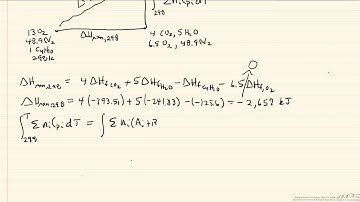 ∫₂₉₈ Σ nᵢ Cₚᵢ dT
13 O₂
48.9 N₂
1 C₄H₁₀
298 K
ΔH rxn,298
4 CO₂, 5 H₂O
6.5 O₂, 48.9 N₂
0
ΔH rxn,298 = 4 ΔHf CO₂ + 5 ΔHf H₂O - ΔHf C₄H₁₀ - 6.5 ΔHf,O₂
ΔH rxn,298 = 4(-393.51) + 5(-241.83) - (-125.6) = -2,657 kJ
∫₂₉₈ᵀ Σ nᵢ Cₚᵢ dT = ∫ Σ nᵢ (Aᵢ + B